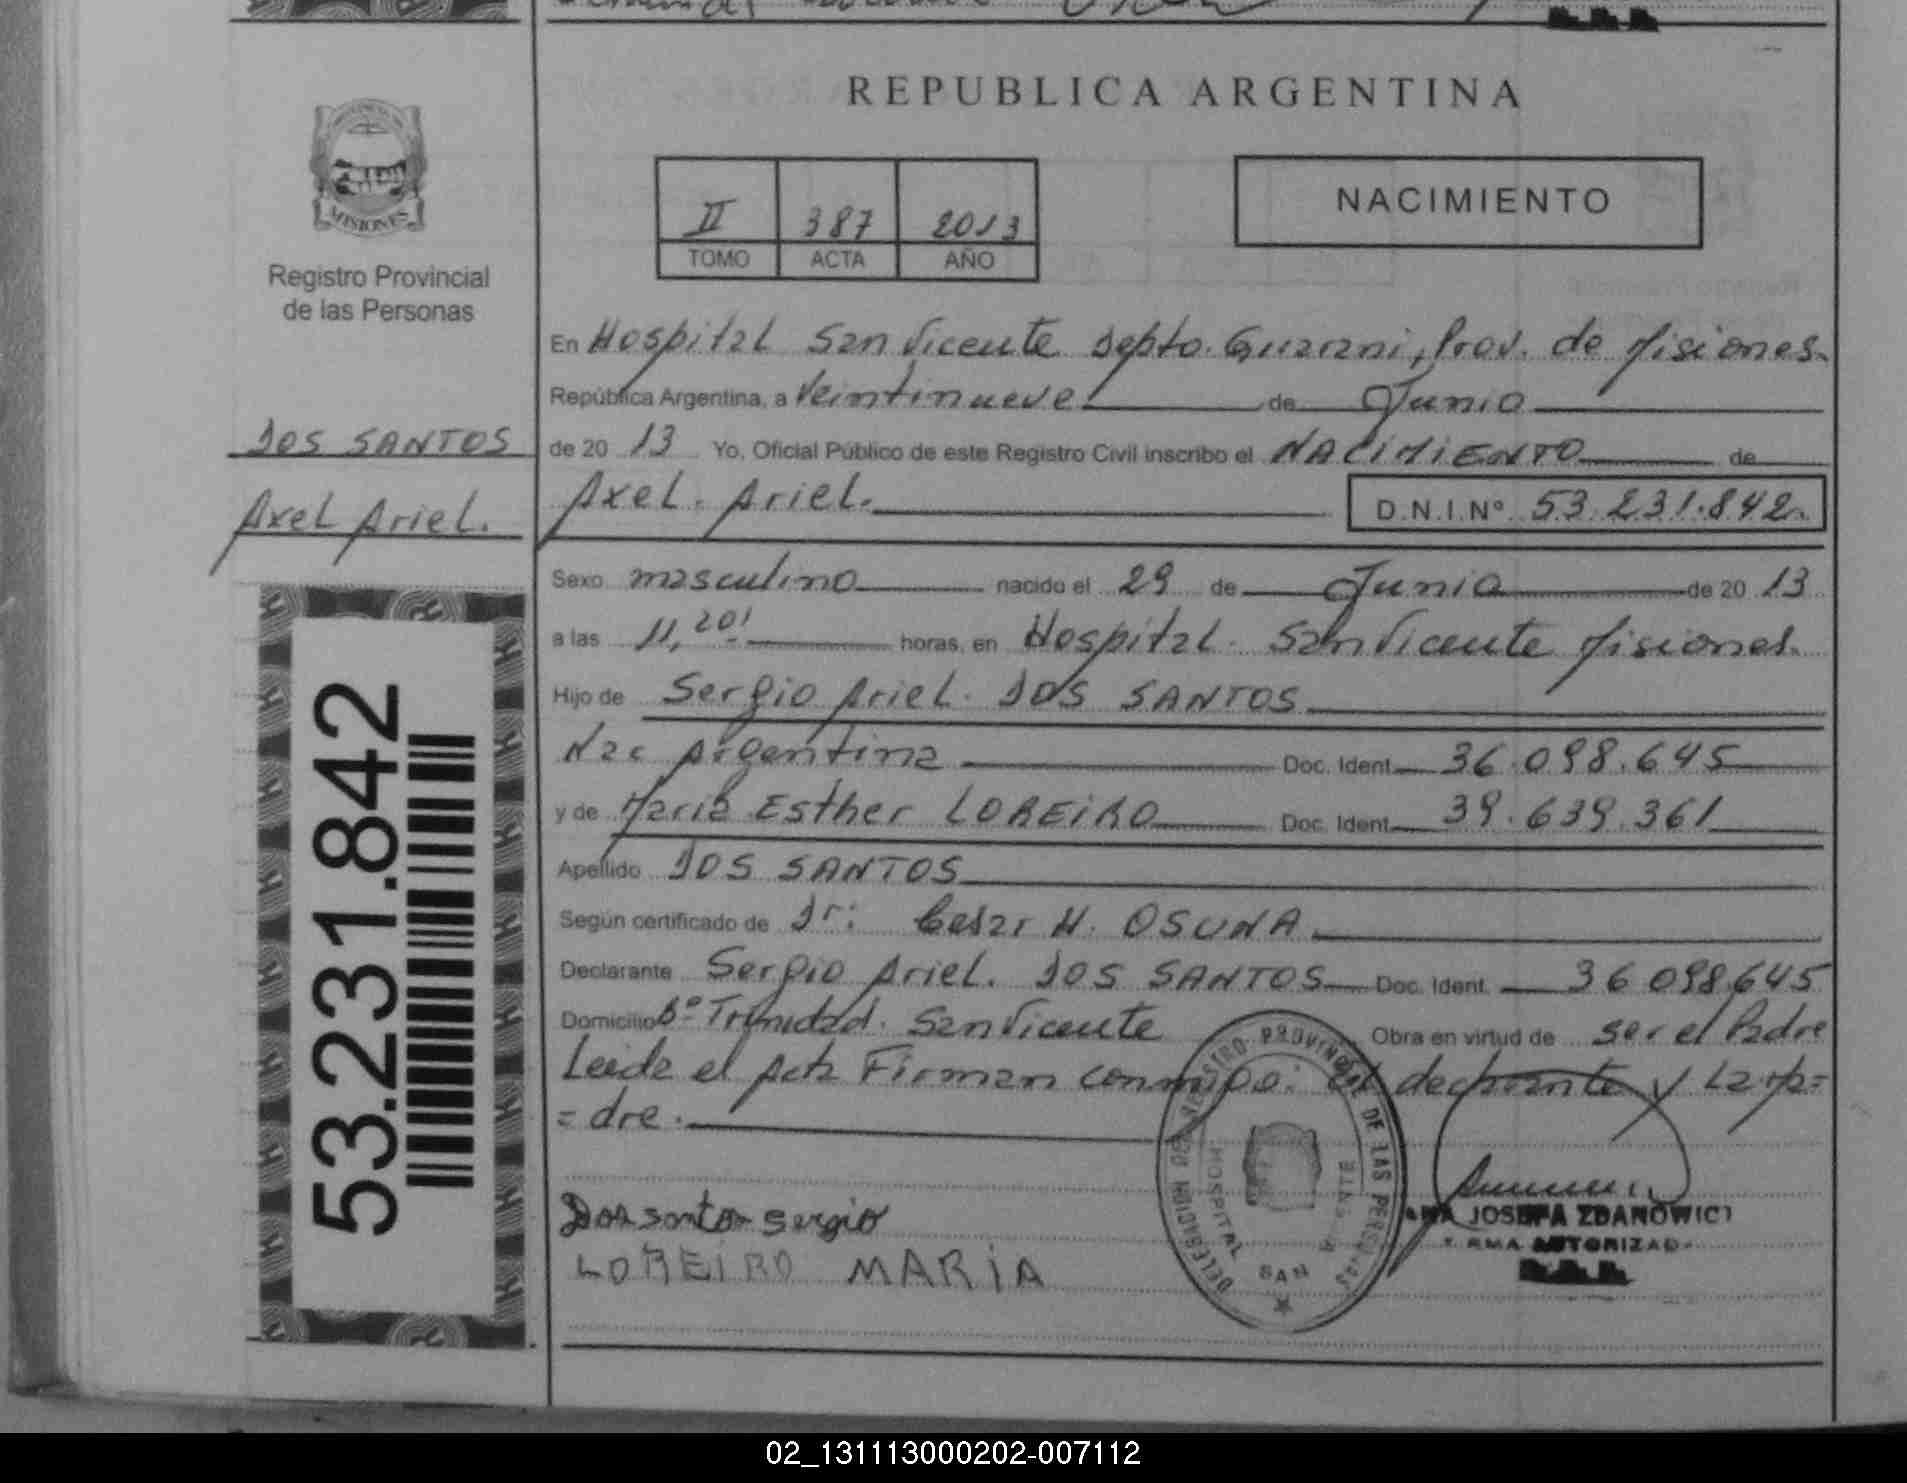 REPUBLICA ARGENTINA
MISIONES
Registro Provincial
de las Personas
II 387 2013
TOMO ACTA AÑO
NACIMIENTO
DOS SANTOS
Axel Ariel.
53.231.842
En Hospital San Vicente Depto. Guarani, Prov. de Misiones.
República Argentina, a Veintinueve de Junio
de 20 13 Yo, Oficial Público de este Registro Civil inscribo el NACIMIENTO de
Axel. Ariel. D.N.I.Nº 53.231.842.
Sexo masculino nacido el 29 de Junio de 20 13
a las 11,20' horas, en Hospital. San Vicente Misiones.
Hijo de Sergio Ariel. DOS SANTOS
Nac Argentina Doc. Ident. 36.098.645
y de Maria Esther LOREIRO Doc. Ident. 39.639.361
Apellido DOS SANTOS
Según certificado de Dr: Cesar H. OSUNA
Declarante Sergio Ariel. DOS SANTOS Doc. Ident. 36 098.645
Domicilio Bº Trinidad. San Vicente Obra en virtud de ser el Padre
Leida el Acta Firman conmigo: el declarante y La Ma=
=dre.
DELEGACION DEL REGISTRO PROVINCIAL DE LAS PERSONAS
HOSPITAL SAN VICENTE
Dos santos sergio
LOREIRO MARIA
JOSEFA ZDANOWICZ
FIRMA AUTORIZADA
02_131113000202-007112